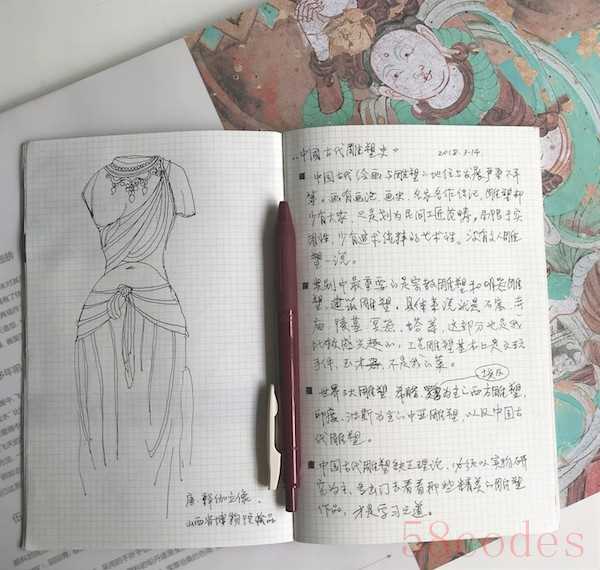 "中国古代雕塑史" 2018.3.14
■ 中国古代绘画与雕塑的地位与发展严重不平
等。画有画论、画史、名家名作传记,雕塑却
少有大家,只是列为民间工匠范畴,局限于实
用性,少有追求纯粹的艺术性。没有文人雕
塑一说。
■ 类别中最重要的是宗教雕塑和明器雕
塑,建筑雕塑,具体来说就是石窟 寺
庙 陵墓 宫苑、塔等,这部分也是我
比较感兴趣的,工艺雕塑基本上是文玩
手件,玉木器,不是我的菜。
埃及
■ 世界三大雕塑,希腊、为主的西方雕塑,
印度、波斯为主的中亚雕塑,以及中国古
代雕塑。
■ 中国古代雕塑缺乏理论,必须以实物研
究为主,多出门去看看那些精美的雕塑
作品,才是学习之道。
唐 立像.
山西省博物院藏品
58codes